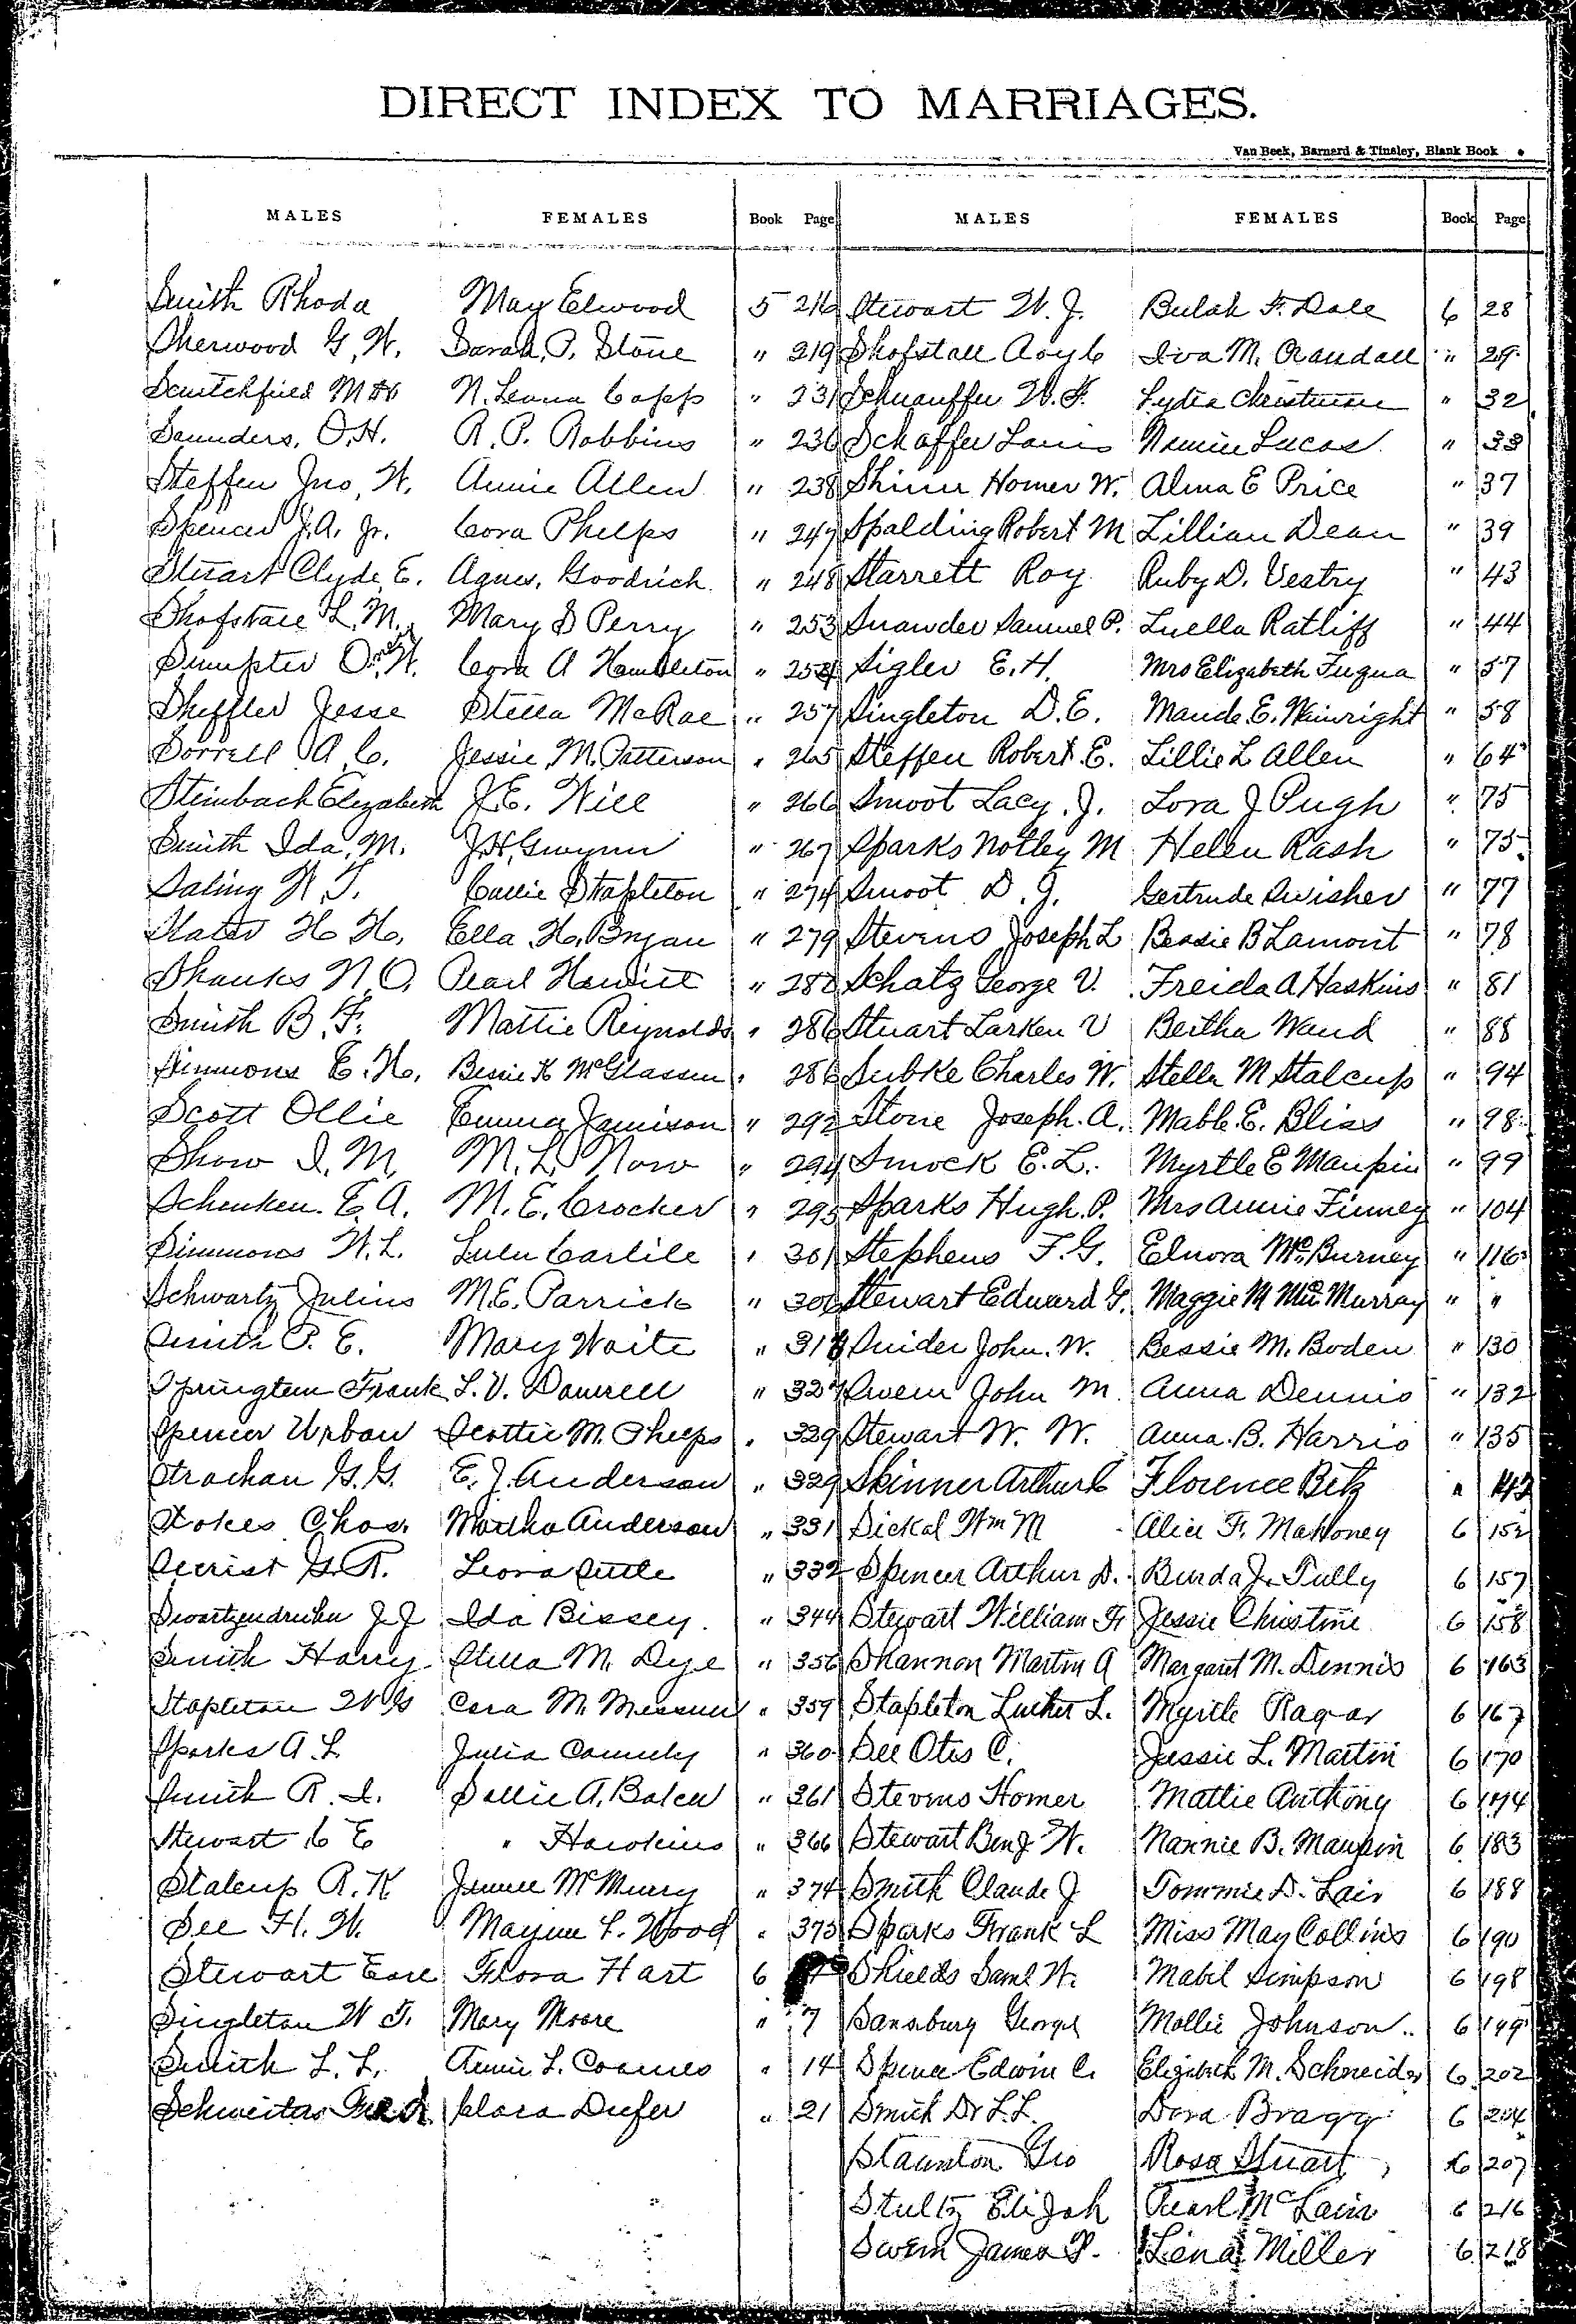 DIRECT INDEX TO MARRIAGES.
Van Beek, Barnard & Tinsley, Blank Book
MALES FEMALES Book Page MALES FEMALES Book Page
Smith Rhoda May Elwood 5 216
Sherwood G. W. Sarah P. Stone " 219
Scrutchfield M N. Leona Capps " 231
Saunders, O.H. R. P. Robbins " 236
Steffen Jno, W. Annie Allen " 238
Spencer J.A. Jr. Cora Phelps " 247
Stuart Clyde E. Agnes Goodrich " 248
Shofstall L. M. Mary S Perry " 253
Sumpter W. Cora A Hambleton " 254
Sheffler Jesse Stella McRae " 257
Sorrell A C. Jessie M. Patterson " 265
Steinbach Elizabeth J. E. Will " 266
Smith Ida, M. J.H. Gwynn " 267
Saling W. T. Callie Stapleton " 274
Slater H H. Ella H. Bryan " 279
Shanks N. O. Pearl Hewitt " 280
Smith B. F. Mattie Reynolds " 286
Simmons E. H. Bessie K McGlassen " 286
Scott Ollie Emma Jamison " 292
Show I. M. M. L. Now " 294
Schenken E. A. M. E. Crocker " 295
Simmons W. L. Lulu Carlile " 301
Schwartz Julius M.E. Parrick " 306
Smith P. E. Mary Waite " 318
Springtem Frank L. V. Damrell " 327
Spencer Urban Scottie M. Phelps " 329
Strachan G. G. E. J. Anderson " 329
Stokes Chas. Martha Anderson " 331
Secrist G. R. Leora Suttle " 332
Swartzendruber J. J Ida Bissey " 344
Smith Harry Stella M. Dye " 356
Stapleton W G Cora M. Messner " 359
Sparks A. L Julia " 360
Smith R. I. Sallie A. Baker " 361
Stewart C E " Hawkins " 366
Stalcup R. K Jennie McMurry " 374
See H. W. Mayme L. Wood " 375
Stewart Earl Flora Hart 6
Singleton W T. Mary Moore " 7
Smith L. L. Annie L. Coames " 14
Schweitas Fred Clara Diefer " 21
Stewart W. J. Bulah F. Dale 6 28
Shofstall Roy C Iva M. Crandall " 29
Schnauffer W. F. Lydia Christman " 32
Schaffer Louis Nannie Lucas " 33
Shinn Homer W. Alma E Price " 37
Spalding Robert M Lillian Dean " 39
Starrett Roy Ruby D. Vestry " 43
Snawder Samuel P. Luella Ratliff " 44
Sigler E. H. Mrs Elizabeth Fuqua " 57
Singleton D. E. Maude E. Wainright " 58
Steffen Robert E. Lillie L Allen " 64
Smoot Lacy. J. Lora J Pugh " 75
Sparks Notley M Helen Rash " 75
Smoot D. J. Gertrude Swisher " 77
Stevens Joseph L Bessie B Lamont " 78
Schatz George V. Freida A Haskins " 81
Stuart Larken V Bertha Waud " 88
Subke Charles W. Stella M Stalcup " 94
Stone Joseph. A. Mable. E. Bliss " 98
Smock E. L. Myrtle E Maupin " 99
Sparks Hugh. P. Mrs Annie Finney " 104
Stephens F. G. Elnora McBurney " 116
Stewart Edward G. Maggie M McMurray " "
Snider John. W. Bessie M. Boden " 130
Swem John M. Anna Dennis " 132
Stewart W. W. Anna. B. Harris " 135
Skinner Arthur C Florence Betz " 142
Sickal Wm M Alice F. Mahoney 6 152
Spencer Arthur D. Burda J. Tully 6 157
Stewart William Fr Jessie Christine 6 158
Shannon Martin A Margaret M. Dennis 6 163
Stapleton Luther L. Myrtle Ragar 6 167
See Otis C. Jessie L. Martin 6 170
Stevens Homer Mattie Anthony 6 174
Stewart Benj W. Nannie B. Maupin 6 183
Smith Claude J Tommie D. Lair 6 188
Sparks Frank L Miss May Collins 6 190
Shields Saml W. Mabel Simpson 6 198
Sansbury George Mollie Johnson 6 199
Spence Edwin C. Elizabeth M. Schneider 6 202
Smith Dr L.L. Dora Bragg 6 204
Staunton Geo Rosa Stuart 6 207
Stultz Elijah Pearl McLain 6 216
Swem James P. Lena Miller 6 218